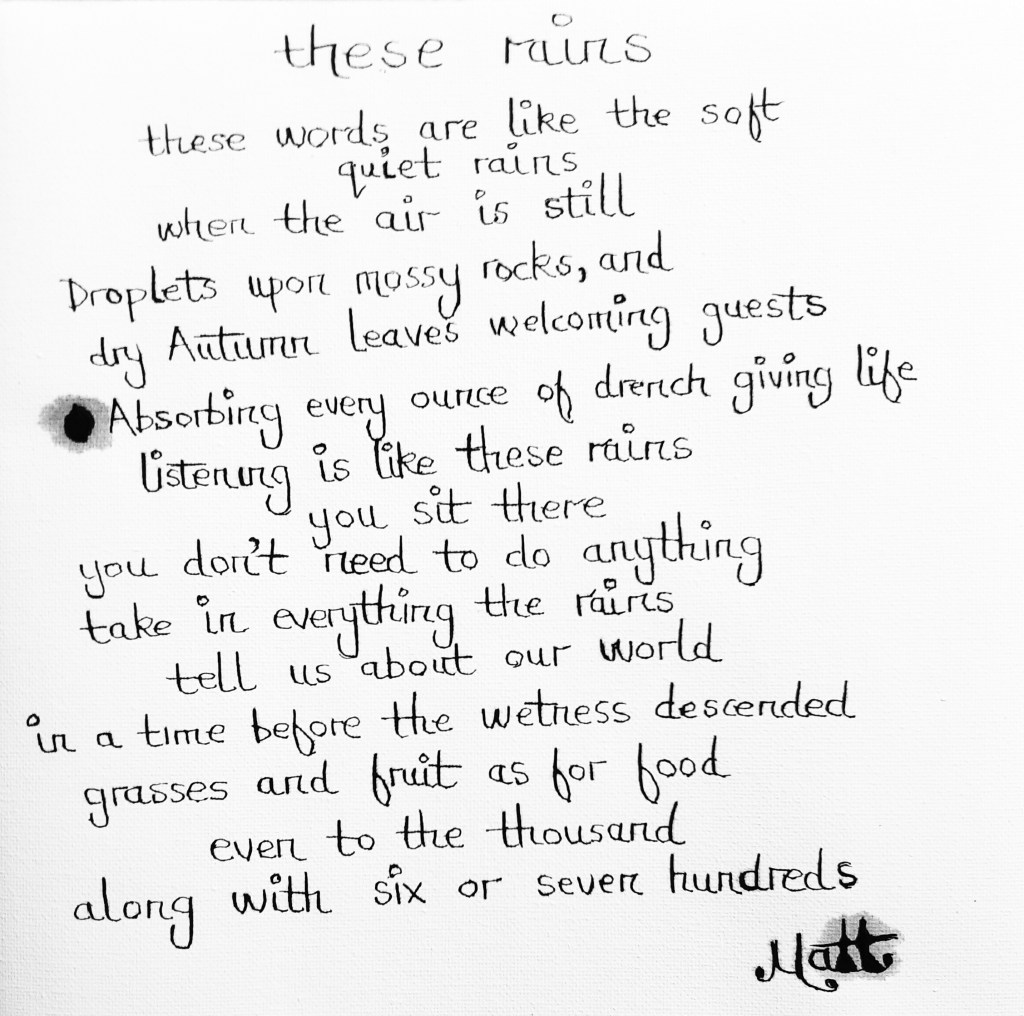 these rains
these words are like the soft
quiet rains
when the air is still
Droplets upon mossy rocks, and
dry Autumn leaves welcoming guests
Absorbing every ounce of drench giving life
listening is like these rains
you sit there
you don't need to do anything
take in everything the rains
tell us about our world
in a time before the wetness descended
grasses and fruit as for food
even to the thousand
along with six or seven hundreds
Matt